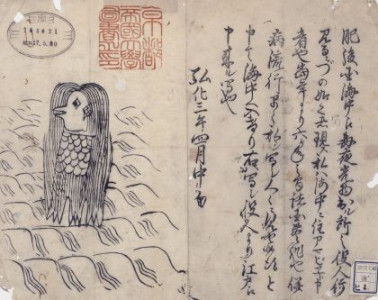 肥後国海中え毎夜光物出ル所之役人行
見るニづの如之者現ス私ハ海中ニ住アマビヱト申
者也当年より六ヶ年之間諸国豊作也併
病流行早々私ヲ写シ人々ニ見セ候得と
申て海中へ入けり右写シ役人より江戸え
申来ル写也
弘化三年四月中旬
京都帝国大学図書之印